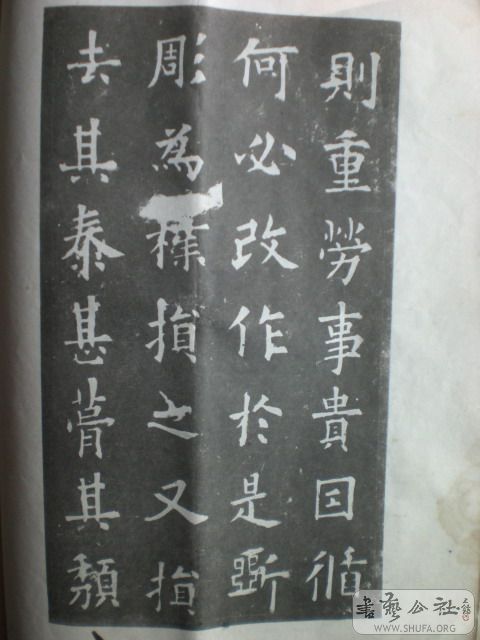 則重勞事貴因循
何必改作於是斲
彫為樸損之又損
去其泰甚葺其頹
書藝公社
WWW.SHUFA.ORG